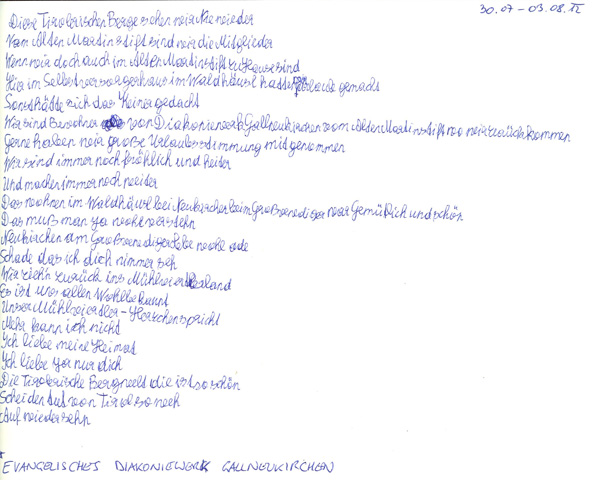 30.07 - 03.08.
Diese Tirolerischen Berge sehen wir nie wieder
Vom Alten Martinstift sind wir die Mitglieder
Wenn wir doch auch im Alten Martinstift zuhause sind
Hir im Selbstversorgerhaus im Waldhäusl hats Spaß gemacht
Sonst hätte sich das Keiner gedacht
Wir sind Bewohner von Diakoniewerk Gallneukirchen vom Alten Martinstift wo wir zurück kommen
Gerne haben wir große Urlaubsstimmung mitgenommen
Wir sind immer noch fröhlich und heiter
Und machen immer noch weiter
Das wohnen im Waldhäusl bei Neukirchen beim Großvenediger war Gemütlich und schön
Das muß man ja wohl verstehn
Neukirchen am Großvenediger lebe wohl ade
Schade das ich dich nimmer seh
Wir zieh'n zurück ins Mühlviertlerland
Es ist was allen Wohlbekannt
Unser Mühlviertler-Herzchen spricht
Mehr kann ich nicht
Ich liebe meine Heimat
Ich liebe ja nur dich
Die Tirolerische Bergwelt die ist so schön
Scheiden tut von Tirol so weh
Auf wiedersehn
EVANGELISCHES DIAKONIEWERK GALLNEUKIRCHEN